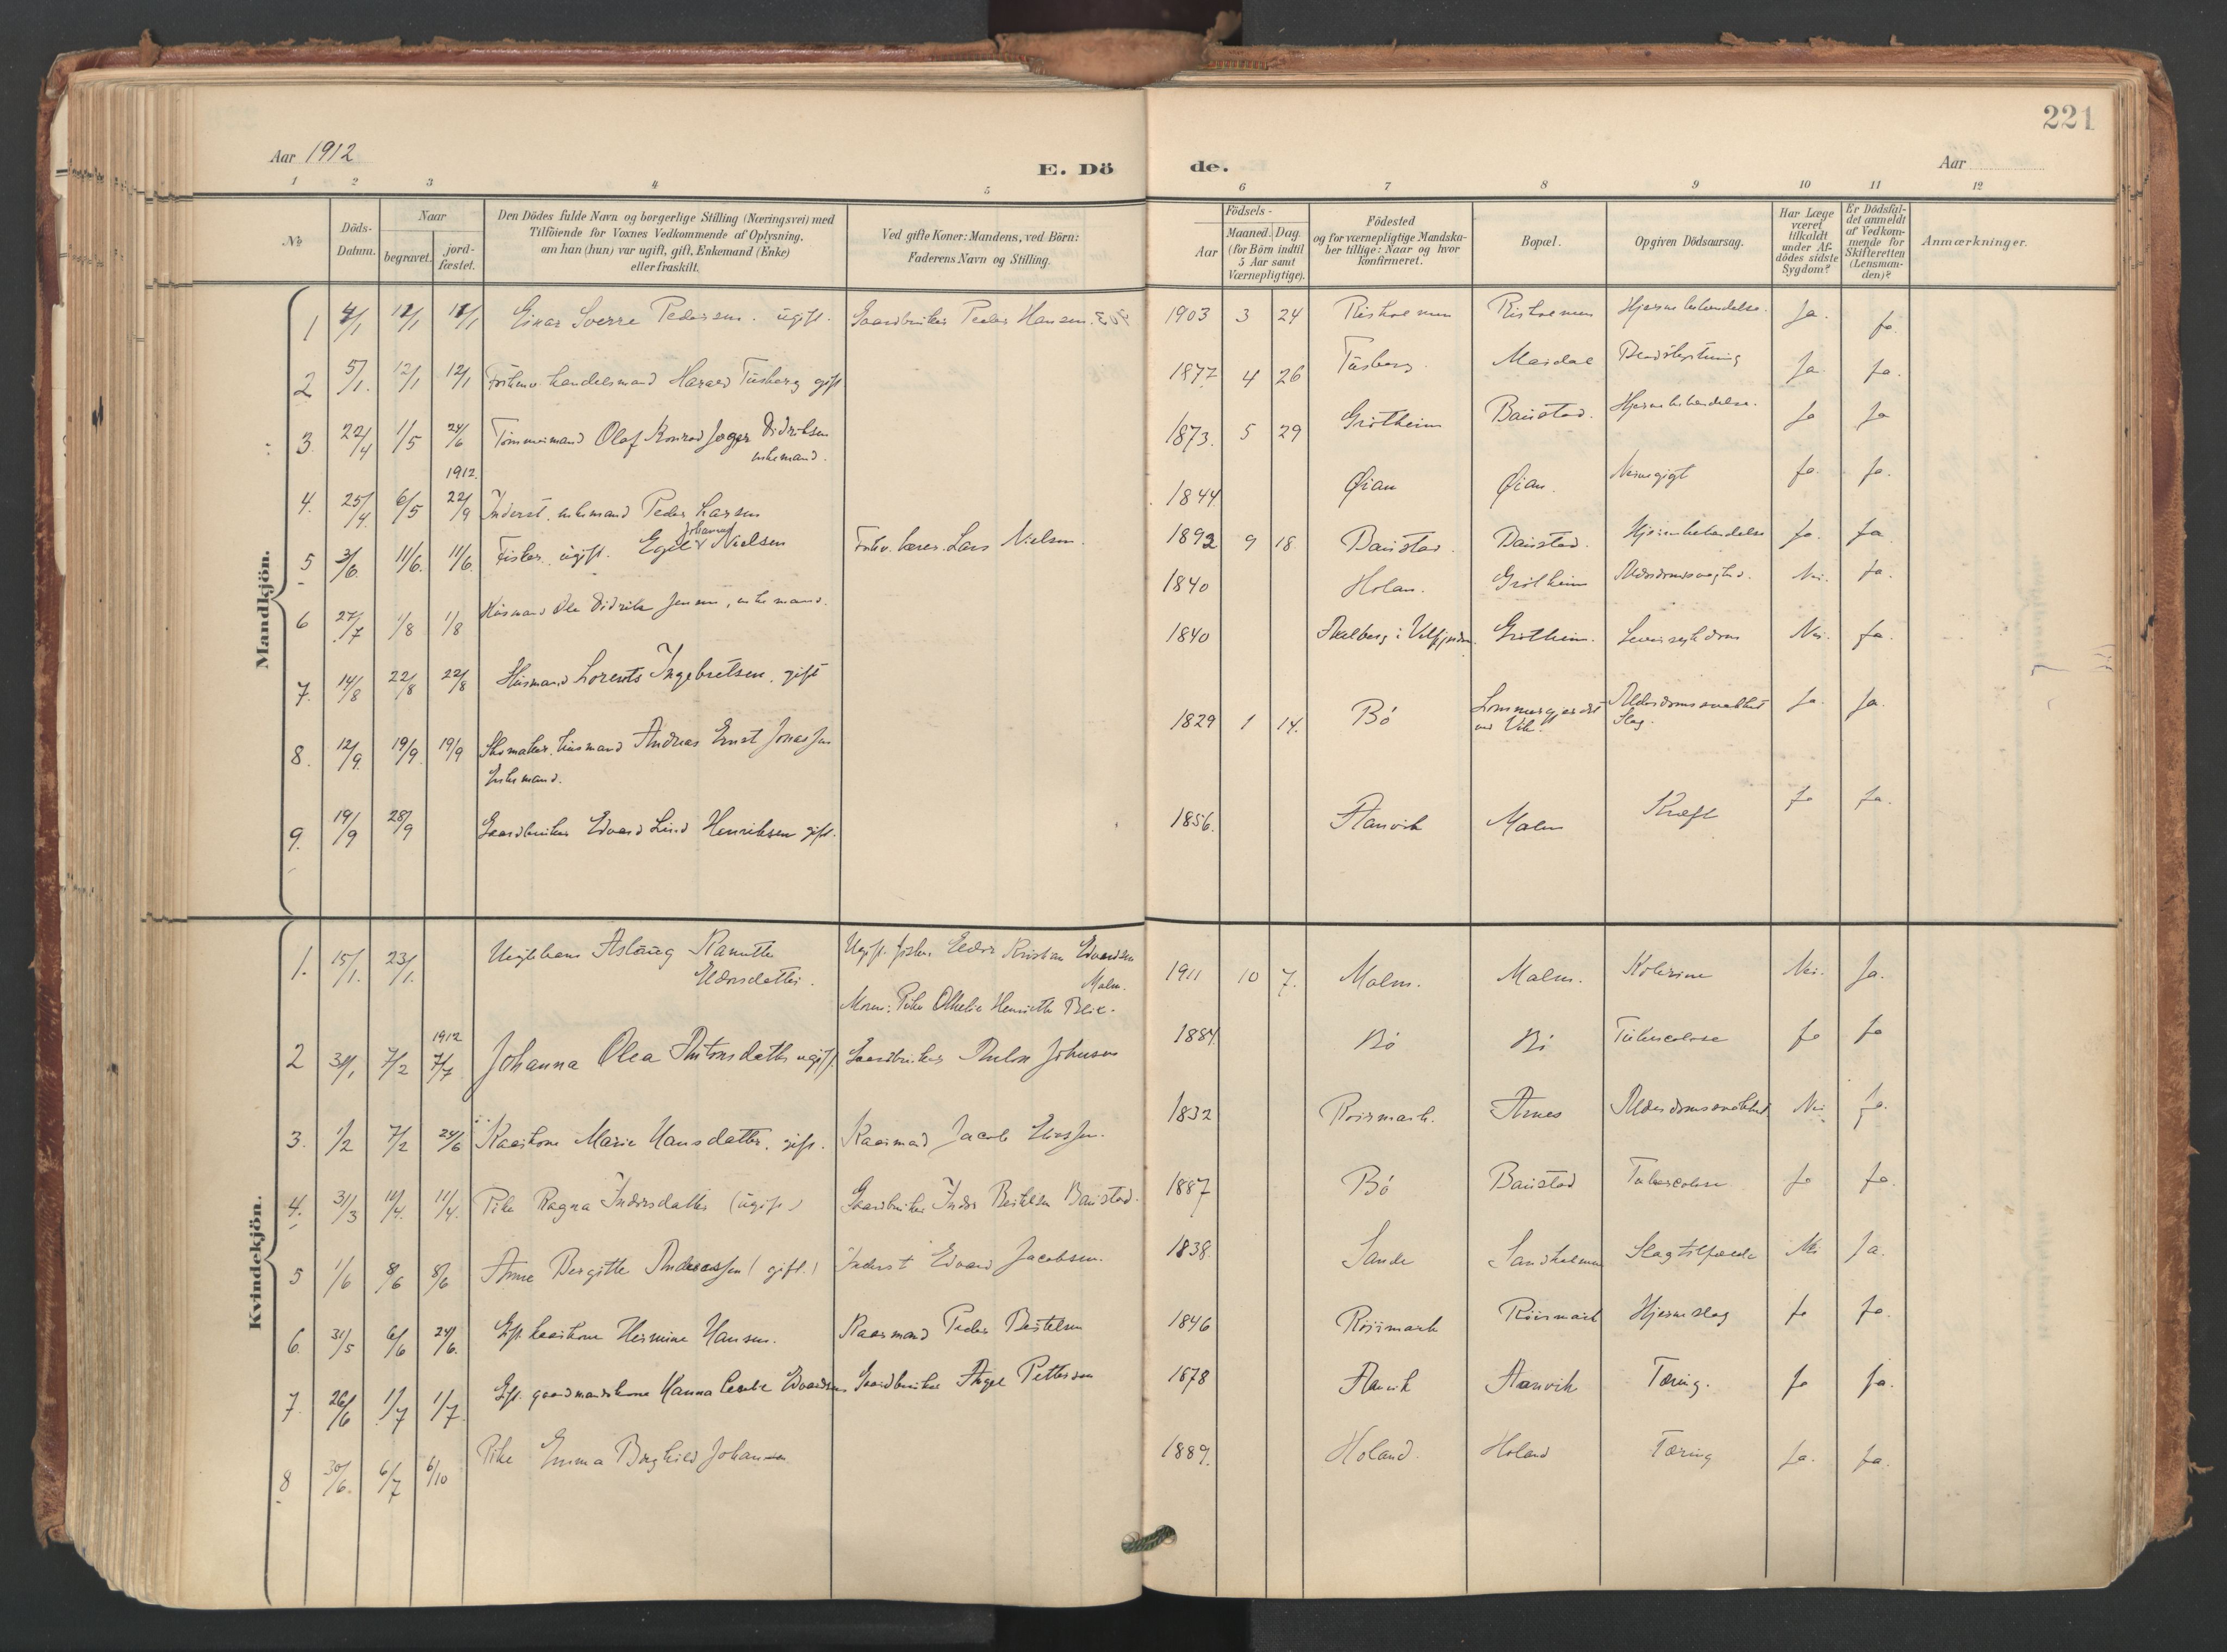 221
Aar 1912
E. Dö
de.
Aar
1 2 3 4 5 6 7 8 9 10 11 12
№
Döds-Datum.
Naar
begravet.
jord-fæstet.
Den Dödes fulde Navn og borgerlige Stilling (Næringsvei) med
Tilföiende for Voxnes Vedkommende af Oplysning,
om han (hun) var ugift, gift, Enkemand (Enke)
eller fraskilt.
Ved gifte Koner: Mandens, ved Börn:
Faderens Navn og Stilling.
Födsels-
Aar
Maaned. Dag.
(for Börn indtil
5 Aar samt
Værnepligtige).
Födested
og for værnepligtige Mandska-
ber tillige: Naar og hvor
konfirmeret.
Bopæl.
Opgiven Dödsaarsag.
Har Læge
været
tilkaldt
under Af-
dödes sidste
Sygdom?
Er Dödsfal-
det anmeldt
af Vedkom-
mende for
Skifteretten
(Lensman-
den)?
Anmærkninger.
Mandkjön.
1 4/1 12/1 12/1 Einar Sverre Pedersen. ugift. Gaardbruker Peder Hansen. 1903 3 24 Risholmen Risholmen Hjernebetændelse. Ja. Ja.
2 5/1. 12/1 12/1 Forhenv. handelsmand Harald Tusberg gift 1877 4 26 Tusberg. Mardal Ja Ja.
3. 22/4 1/5 24/6 Tømmermand Olaf Konrad Jæger Didriksen
enkemand. 1873. 5 29 Grøtheim Baustad. Hjernebetændelse. Ja Ja
1912.
4. 25/4. 6/5 22/9 Inderst, enkemand Peder Larsen 1844. Øian Øian. Ja. Ja.
5 3/6. 11/6. 11/6. Fisker, ugift. Egil Johannes Nielsen Forhv. lærer Lars Nielsen. 1892 9 18. Baustad. Baustad. Hjernebetændelse Ja. Ja.
6 27/7 1/8 1/8 Husmand Ole Didrik Jensen, enkemand. 1840 Holan. Grøtheim Nei. Ja.
7. 14/8 22/8 22/8 Husmand Lorents Ingebretsen. gift 1840 Aalberg i Velfjorden. Grøtheim. Nei. Ja.
8. 12/9. 19/9. 19/9 Skomaker, husmand Andreas Ernst Jonassen
Enkemand. 1829 1 14. Bö Alderdomssvakhet
Slag. Ja. Ja.
9. 19/9 28/9 Gaardbruker Edvard Lind Henriksen gift. 1856. Aanvik Malm Kræft Ja Ja.
Kvindekjön.
1. 15/1. 23/1. Aslaug Ranutte
Eldorsdatter. Ugift. fisker Eldor Kristian Edvardsen
Malm.
Moren: Pike Othelie Henriette Blix. 1911 10 7. Malm. Malm. Kolerine Nei. Ja.
1912
2 31/1 7/2 7/7 Johanna Olea Antonsdatter ugift. Gaardbruker Anton Johnsen 1884. Bö Bö Tuberculose Ja Ja
3. 1/2 7/2 24/6 Kaarkone Marie Hansdatter. gift. Kaarmand Jacob 1832 Røirmark. Arnes Alderdomssvakhet Nei Ja.
4. 31/3 11/4. 11/4. Pike Ragna Indersdatter (ugift) Gaardbruker Inder Bertelsen Baustad. 1887 Bö Baustad Tuberculose Ja Ja.
5 1/6 8/6 8/6 Anne Bergitte Andreassen (gift.) Inderst Edvard Jacobsen. 1838. Sande Sandholmen Slagtilfælde Nei Ja.
6. 31/5 6/6 24/6. Gift. kaarkone Hermine Hansen. Kaarmand Peder Bertelsen 1846 Røirmark Røirmark Hjerneslag Ja Ja.
7. 26/6 1/7 1/7. Gift. gaardmandskone Hanna Cecelie Edvardsen Gaardbruker Angel Pettersen 1878 Aanvik Aanvik Tæring. Ja Ja.
8 30/6. 6/7 6/10 Pike Emma Borghild Johansen 1889. Holand. Holand Tæring Ja. Ja.